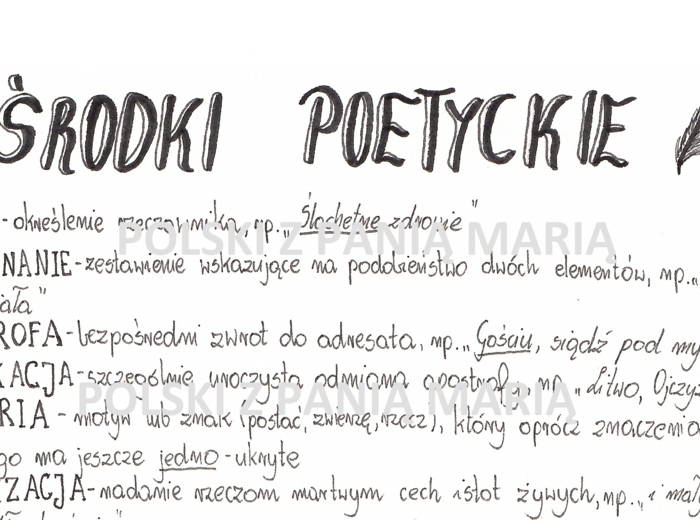 ŚRODKI POETYCKIE
- określenie rzeczownika, np. „Ślachetne zdrowie"
NANIE - zestawienie wskazujące na podobieństwo dwóch elementów, np. „
iała"
ROFA - bezpośredni zwrot do adresata, np. „Gościu, siądź pod my
KACJA - szczególnie uroczysta odmiana apostrofy, np. „Litwo, Ojczyz
RIA - motyw lub znak (postać, zwierzę, rzecz), który oprócz znaczenia
go ma jeszcze jedno - ukryte
IZACJA - nadanie rzeczom martwym cech istot żywych, np. „i mał
POLSKI Z PANIĄ MARIĄ
POLSKI Z PANIĄ MARIĄ